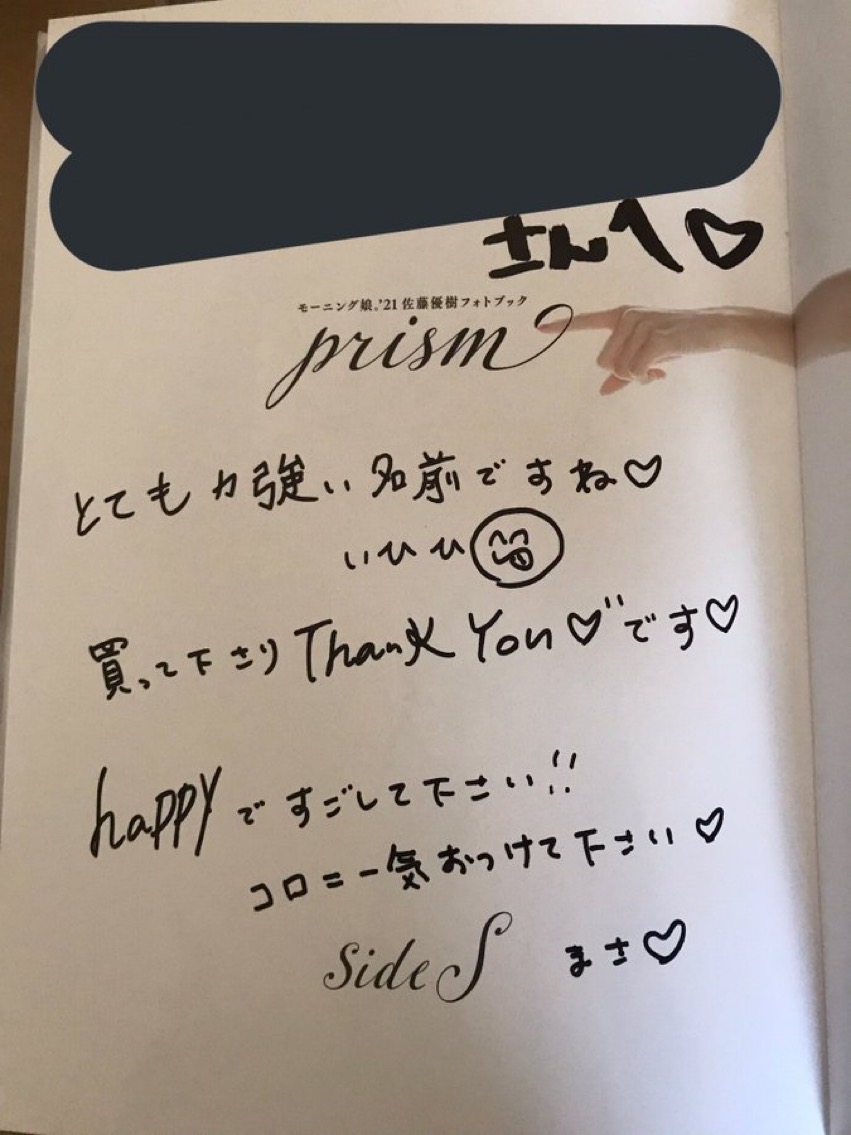 さんへ♡
モーニング娘。'21 佐藤優樹フォトブック
prism
とても力強い名前ですね♡
いひひ
買って下さり Thank You♡"です♡
happyですごして下さい!!
コロニー気おつけて下さい♡
side S
まさ♡